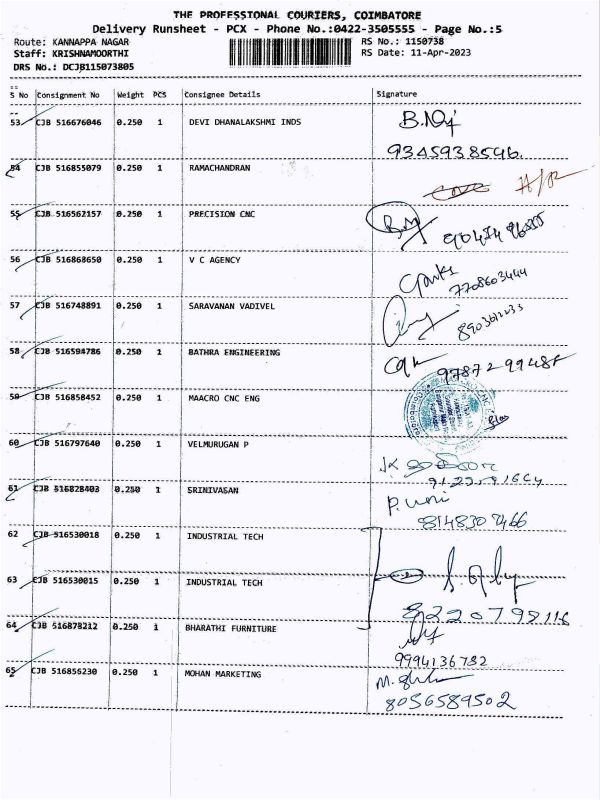 THE PROFESSIONAL COURIERS, COIMBATORE
Delivery Runsheet - PCX - Phone No.:0422-3505555 - Page No.:5
Route: KANNAPPA NAGAR RS No.: 1150738
Staff: KRISHNAMOORTHI RS Date: 11-Apr-2023
DRS No.: DCJB115073805
S No Consignment No Weight PCS Consignee Details Signature
53 CJB 516676046 0.250 1 DEVI DHANALAKSHMI INDS
9345938546.
54 CJB 516855079 0.250 1 RAMACHANDRAN
55 CJB 516562157 0.250 1 PRECISION CNC
56 CJB 516868650 0.250 1 V C AGENCY
7708603444
57 CJB 516748891 0.250 1 SARAVANAN VADIVEL
58 CJB 516594786 0.250 1 BATHRA ENGINEERING
59 CJB 516858452 0.250 1 MAACRO CNC ENG
60 CJB 516797640 0.250 1 VELMURUGAN P
61 CJB 516828403 0.250 1 SRINIVASAN
8148307466
62 CJB 516530018 0.250 1 INDUSTRIAL TECH
63 CJB 516530015 0.250 1 INDUSTRIAL TECH
8220795116
64 CJB 516878212 0.250 1 BHARATHI FURNITURE
9994136782
65 CJB 516856230 0.250 1 MOHAN MARKETING
8056589502